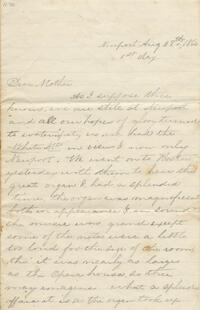 Newport Aug 28th, 186
1st day
Dear Mother
As I suppose thee
knows, we are still at Newport
and all our hope of
is
in view now only
Newport. We went onto Boston
yesterday with them to hear the
great organ & had a splendid
time, the organ was magnificent
both in appearance & in sound
the music was grand except
some of the notes were a little
too loud for the size of the room
tho' it was nearly as large
as the Opera house, so thee
may imagine what a splendid
affair it is as the organ took up